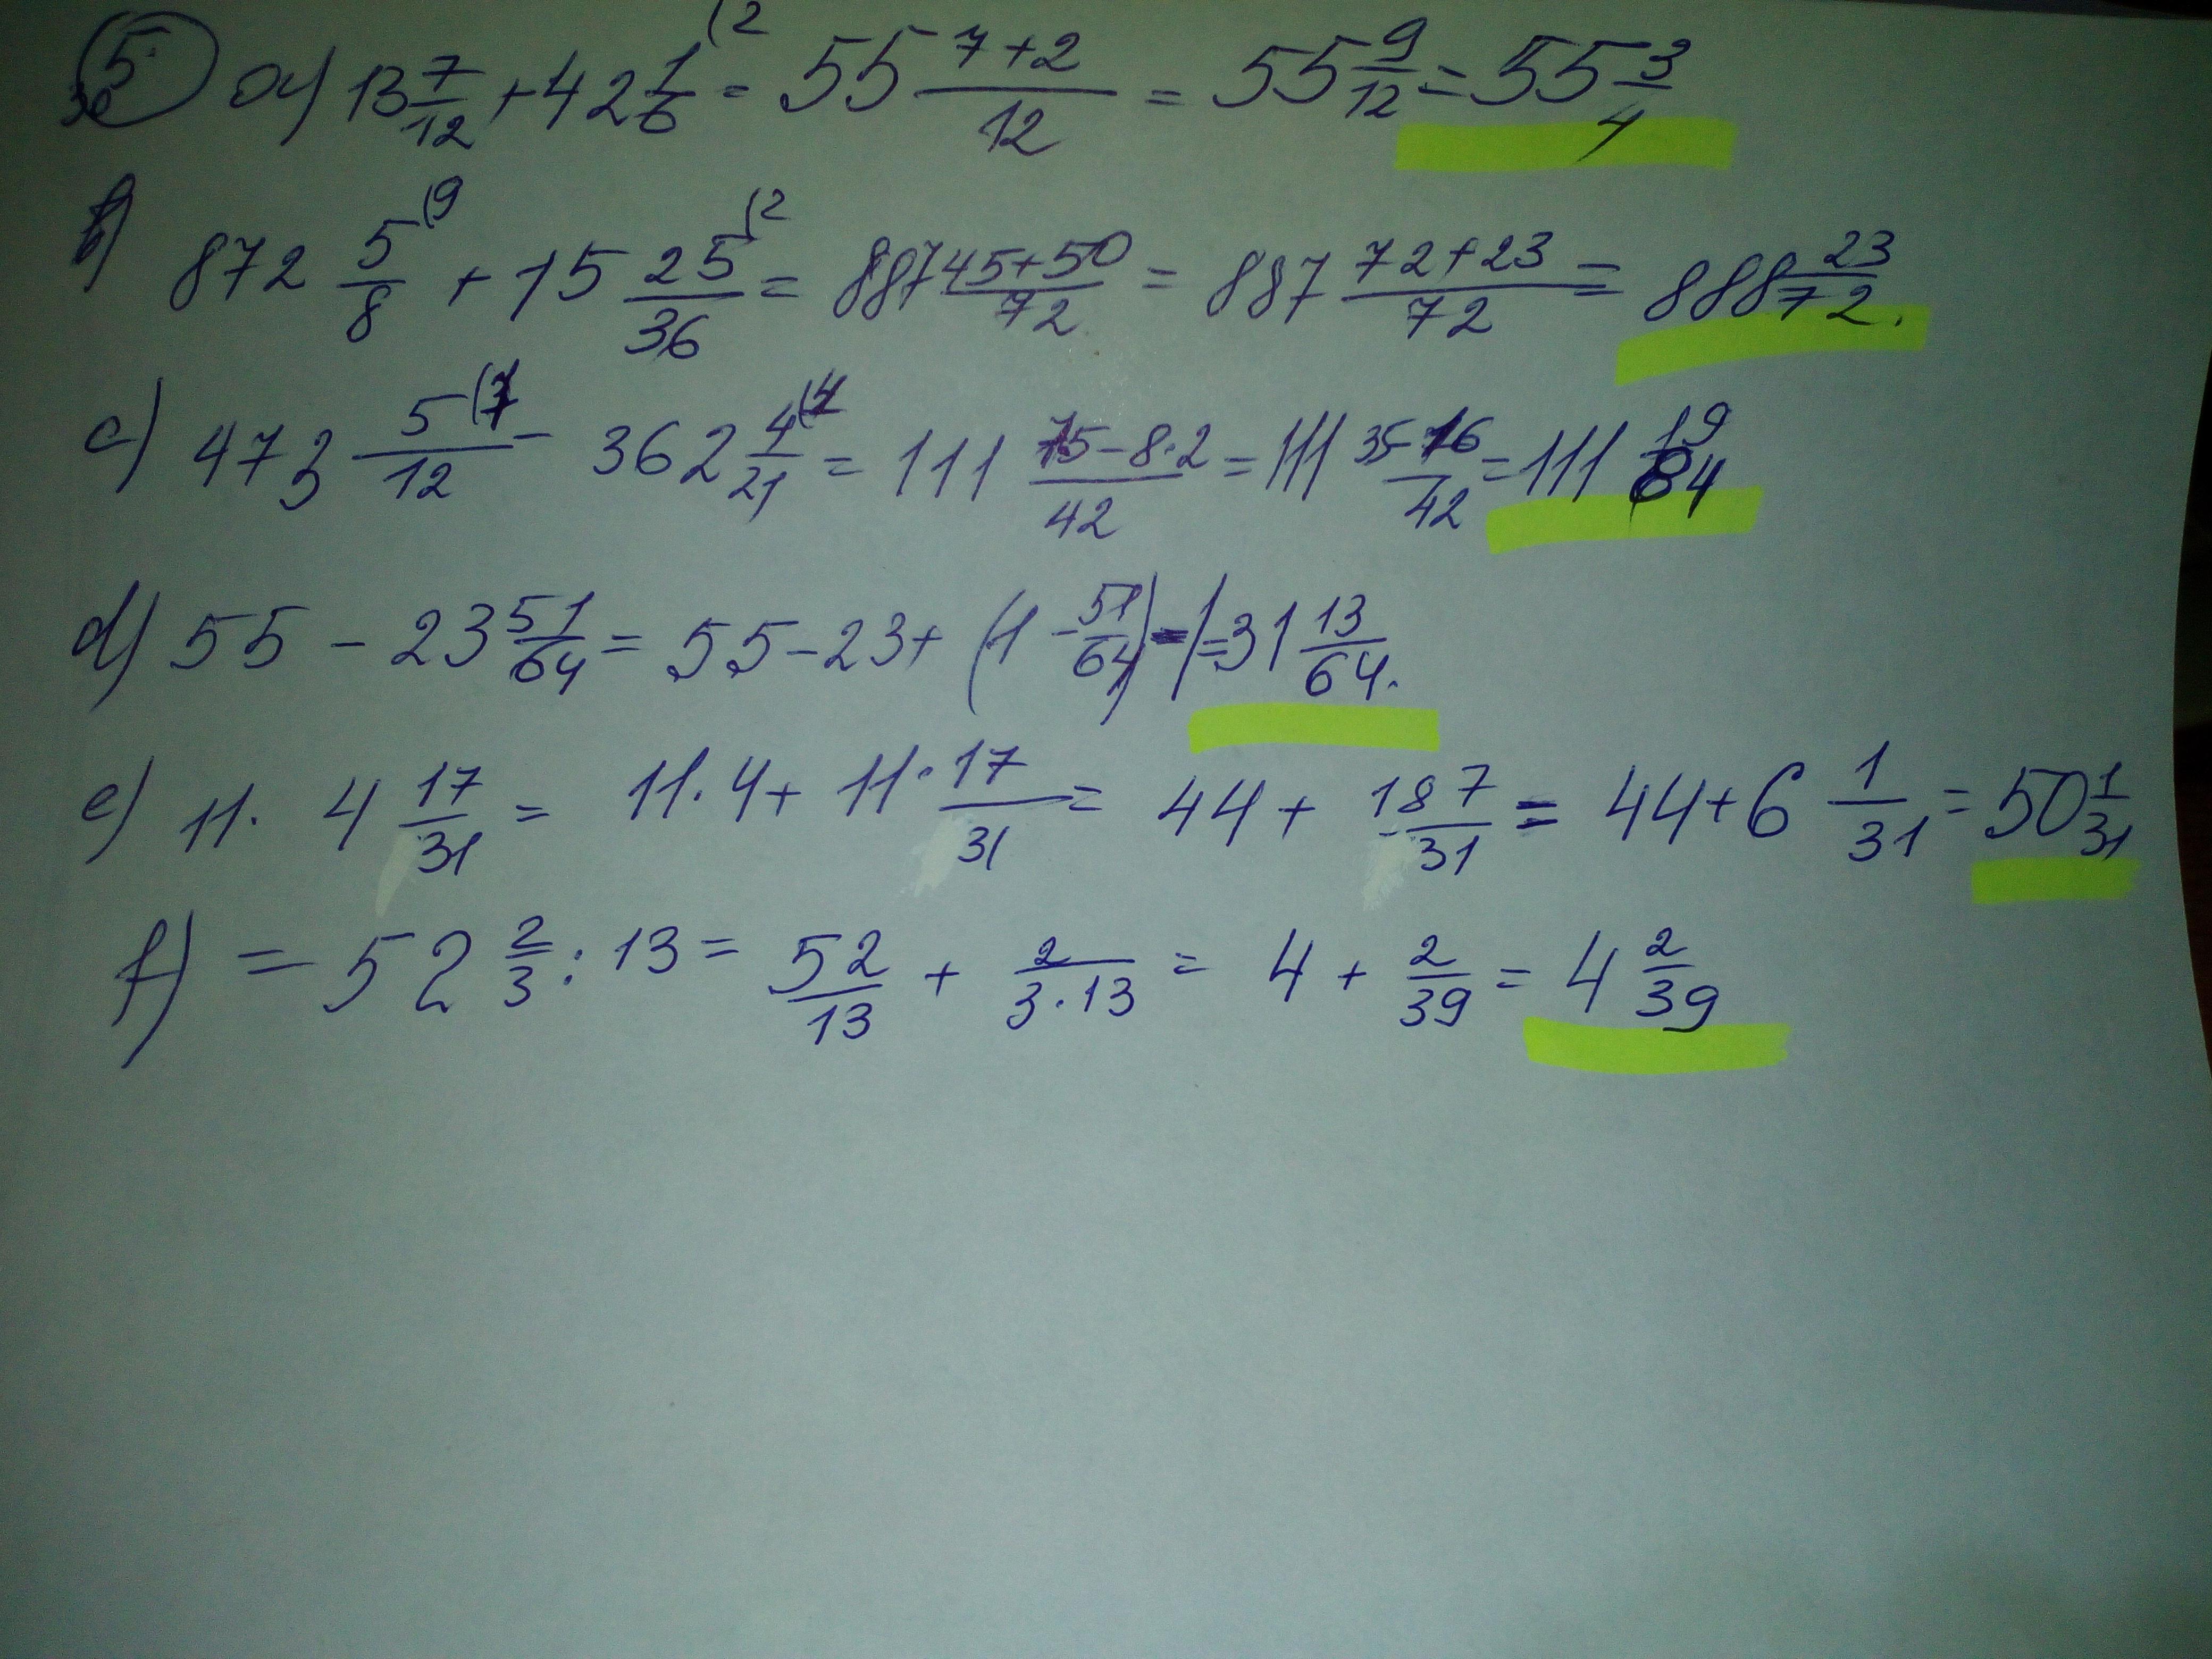 5. a) 13 7/12 + 42 1/6 (2 = 55 (7+2)/12 = 55 9/12 = 55 3/4
b) 872 5/8 (9 + 15 25/36 (2 = 887 (45+50)/72 = 887 (72+23)/72 = 888 23/72.
c) 473 5/12 (7 - 362 4/21 (4 = 111 (15-8·2)/42 = 111 (35-16)/42 = 111 19/84
d) 55 - 23 51/64 = 55-23+ (1 - 51/64) - 1 = 31 13/64.
e) 11 · 4 17/31 = 11·4+ 11· 17/31 = 44 + 187/31 = 44+6 1/31 = 50 1/31
f) = 52 2/3 : 13 = 52/13 + 2/(3·13) = 4 + 2/39 = 4 2/39